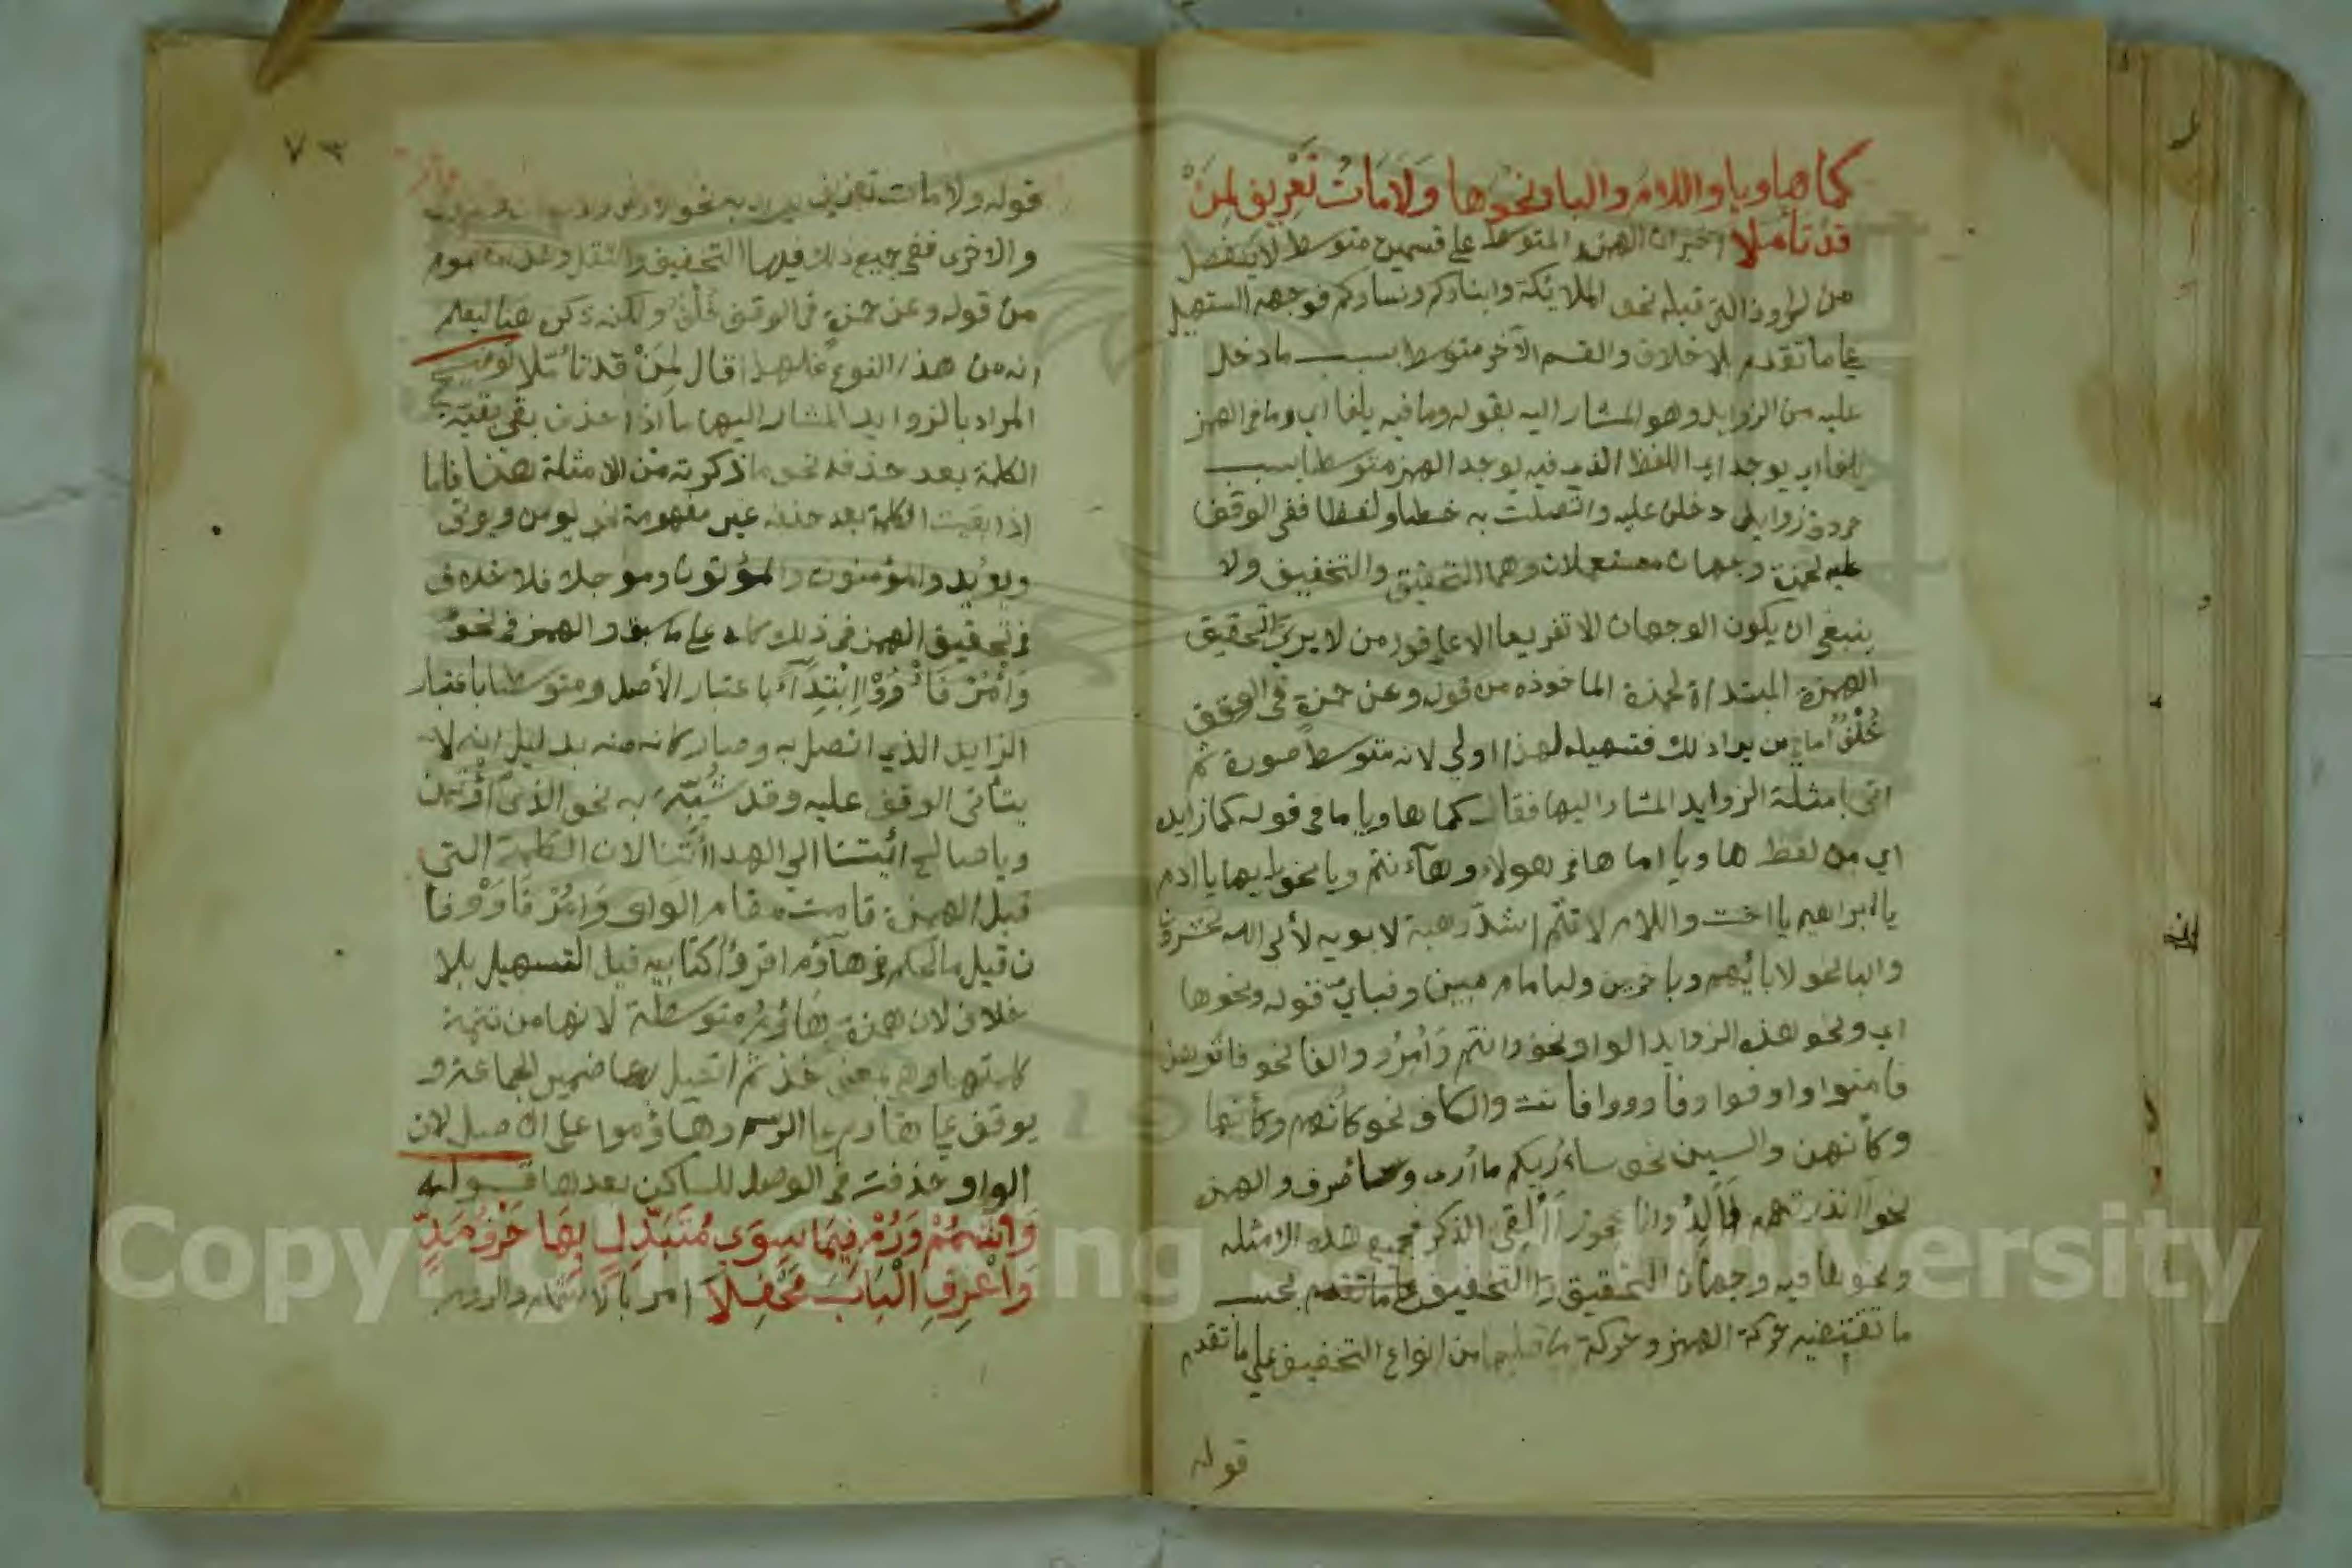 كما ها ويا واللام والبا ونحوها ولامات تعريف لمن
قد تأملا اخبر ان الهمز المتوسط على قسمين متوسط لا ينفصل
من الحروف التي قبله نحو الملائكة وابناؤكم ونساؤكم فوجهه التسهيل
على ما تقدم بلا خلاف والقسم الآخر متوسط بسبب ما دخل
عليه من الزوايد وهو المشار اليه بقوله وما فيه يلفا اي وما في الهمز
يلفا اي يوجد اي اللفظ الذي فيه يوجد الهمز متوسطا بسبب
حروف زوايد دخلن عليه واتصلت به خطا ولفظا ففي الوقف
عليه لحمزة وجهان مستعملان وهما التحقيق والتخفيف ولا
ينبغي ان يكون الوجهان الا تفريعا الا على قول من لا يرى التحقيق
الهمزة المبتداة لحمزة الماخوذه من قوله وعن حمزة في الوقف
خلف اما من يرا ذلك فتسهيله لهذا اولي لانه متوسط صورة ثم
اتى بامثلة الزوايد المشار اليها فقال كما ها ويا ما في قوله كما زايده
اي من لفظ ها ويا اما ها في هولاء وهآءنتم ويا نحو يايها يا ادم
يا ابراهيم يا اخت واللام لانتم اشد رهبة لابويه لألى الله تحشرون
والبا نحو لابائهم وباخرين ولبامام مبين وفباي قوله ونحوها
اي ونحو هذه الزوايد الواو نحو وانتم وأمر والفا نحو فاتوهن
فامنوا واوفوا وفاووا فانت والكاف نحو كأنهم وكأنها
وكأنهن والسين نحو ساوريكم ما أرى وسأصرف والهمز
نحو أأنذرتهم أألد وانا عجوز أألقي الذكر فجميع هذه الامثله
ونحوها فيه وجهان التحقيق والتخفيف على ما تقدم بحسب
ما تقتضيه حركة الهمز وحركة ما قبلها من انواع التخفيف على ما تقدم
قوله
٧٣
قوله ولامات تعريف يريد به نحو الارض
والاخرى ففي جميع ذلك فيها التحقيق والنقل
من قوله وعن حمزة في الوقف خلف ولكنه ذكره هنا ليعلم
انه من هذا النوع فلهذا قال لمن قد تأملا توضيح
المراد بالزوايد المشار اليها ما اذا حذف بقي بقية
الكلمة بعد حذفه نحو ما ذكرته من الامثلة هنا فاما
اذا بقيت الكلمة بعد حذفه غير مفهومة نحو يومن ويوتى
ويؤيد والمؤمنون والمؤتون وموجلا فلا خلاف
في تحقيق الهمز في ذلك كله على ما سبق والهمز في نحو
وأمر فأووا ابتدآء باعتبار الأصل ومتوسطا باعتبار
الزايد الذي اتصل به وصار كانه منه بدليل انه لا
يتأتى الوقف عليه وقد شبه به نحو الذي اؤتمن
ويا صالح ائتنا الى الهدا ائتنا لان الكلمة التي
قبل الهمزة قامت مقام الواو وأمر فأووفا
ن قيل ما الحكم في هآؤم اقرؤا كتابيه قيل التسهيل بلا
خلاف لان همزة هاؤم متوسطة لانها من تتمة
كلمتها وهي بمعنى خذ ثم اتصل بها ضمير الجماعة و
يوقف على هاؤم على الرسم وهاؤموا على الاصل لان
الواو حذفت في الوصل للساكن بعدها قوله
وأشمم ورم فيما سوى متبدل بها حرف مد
واعرف الباب محفلا امر بالاشمام والروم
Copyright © King Saud University